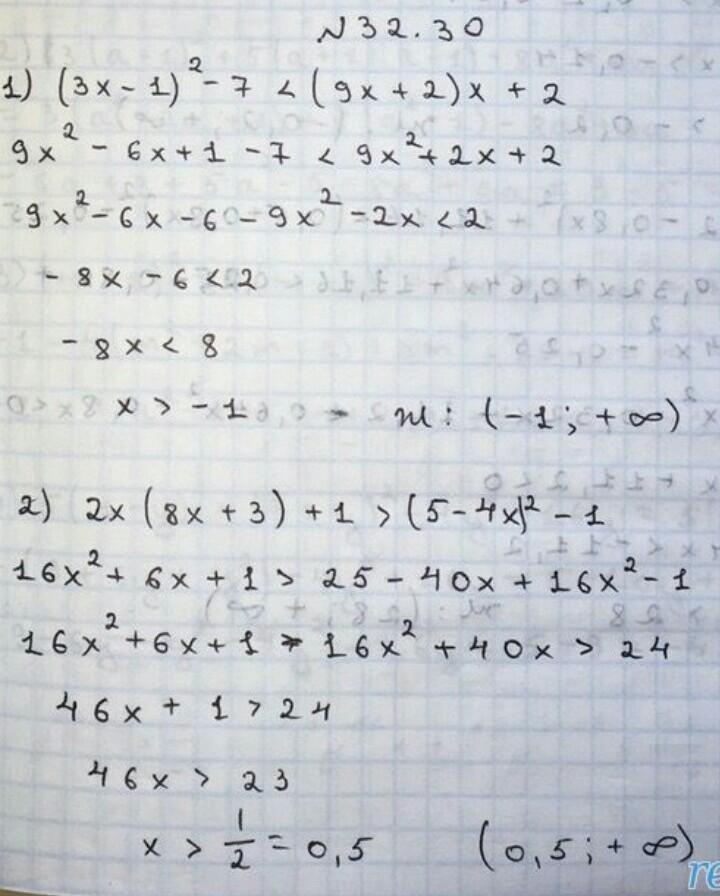 N 32.30
1) (3x - 1)² - 7 < (9x + 2)x + 2
9x² - 6x + 1 - 7 < 9x² + 2x + 2
9x² - 6x - 6 - 9x² - 2x < 2
- 8x - 6 < 2
- 8x < 8
x > -1 m: (-1; + ∞)
2) 2x (8x + 3) + 1 > (5 - 4x)² - 1
16x² + 6x + 1 > 25 - 40x + 16x² - 1
16x² + 6x + 1 - 16x² + 40x > 24
46x + 1 > 24
46x > 23
x > 1/2 = 0,5 (0,5; + ∞)
re